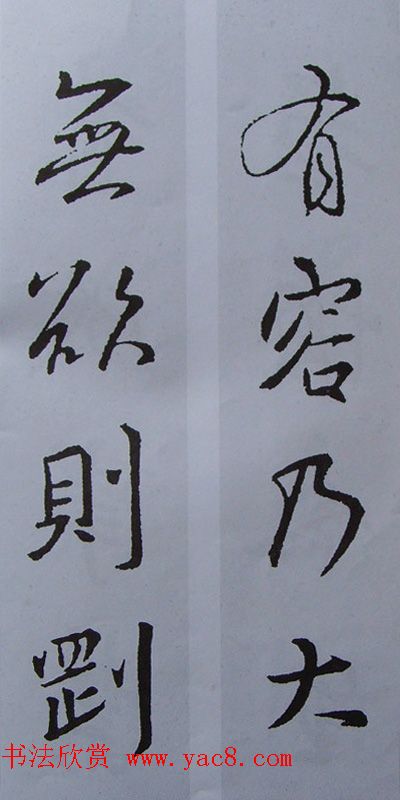 有容乃大
無欲則剛
书法欣赏 www.yac8.com